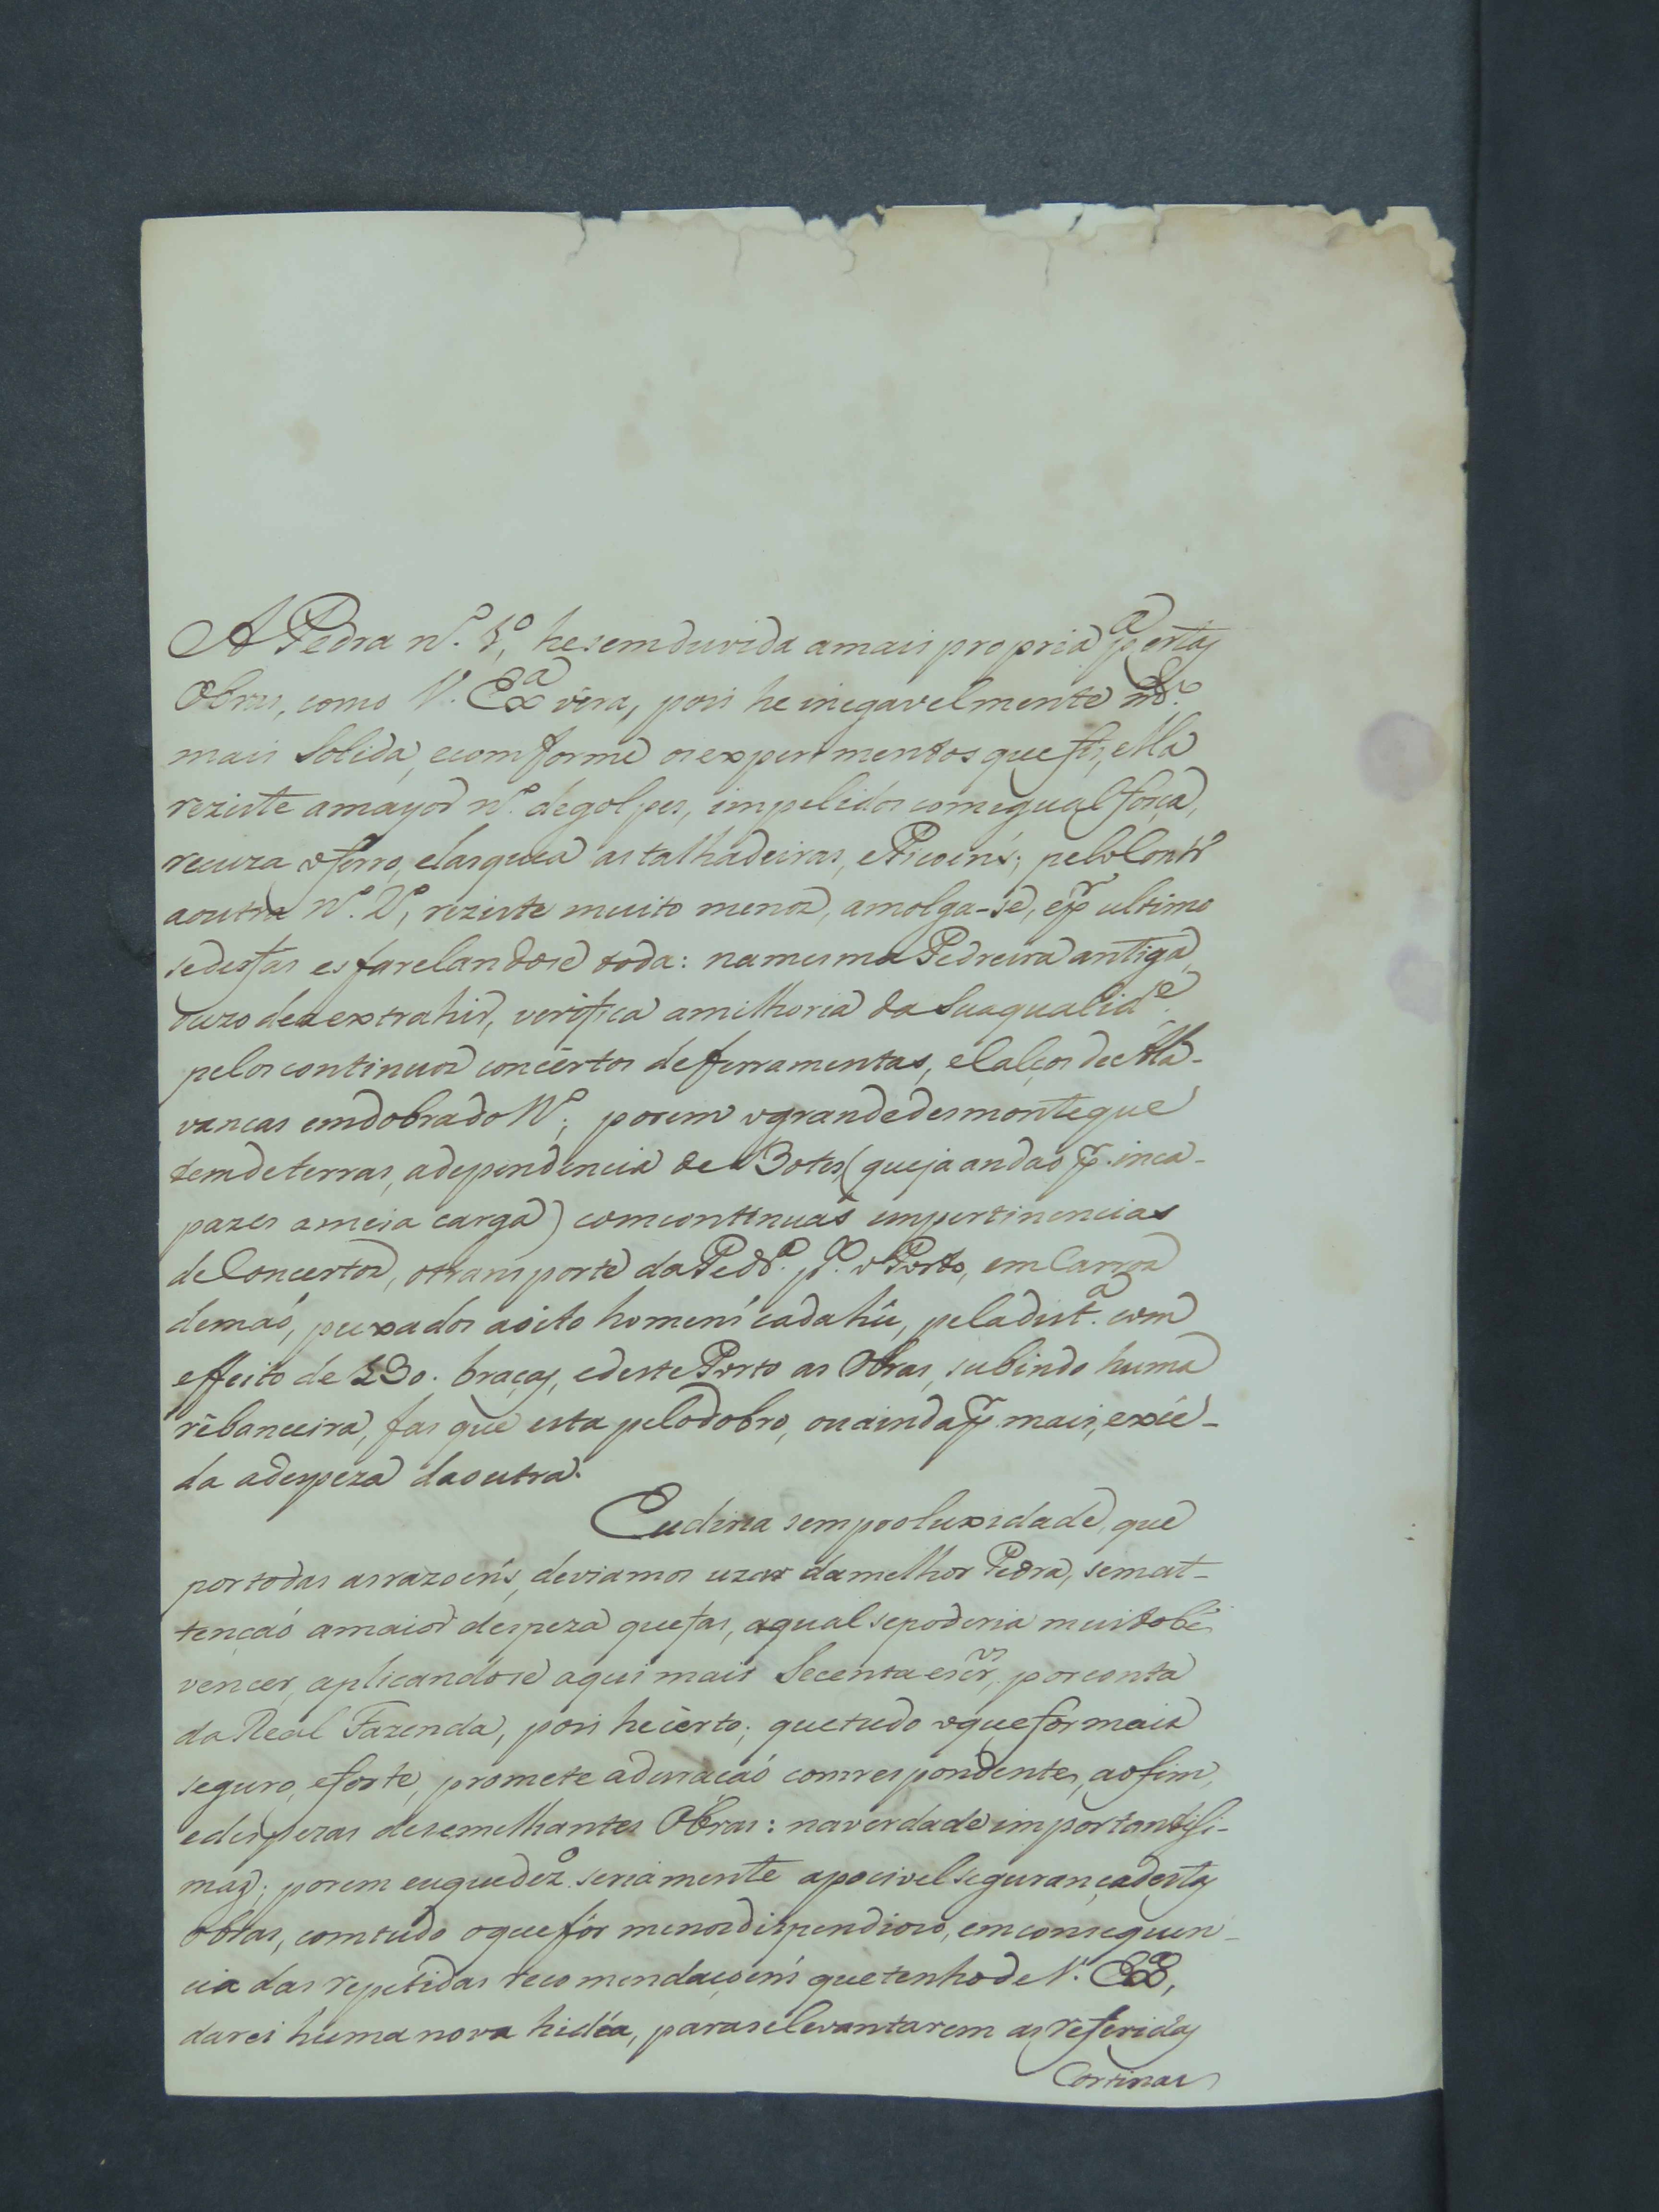 A Pedra n.º 1º, he sem duvida a mais propria pª estas
Obras, como V. Exª vera, pois he inegavelmente mto.
mais Solida, e comforme os experimentos que fis, ella
reziste a mayor nº. de golpes, impelidos com igual força,
recuza o ferro, e lasquea as talhadeiras, e Picoens; pelo Contrº
a outra Nº. 2º, reziste muito menos, amolga-se, e pr ultimo
se desfas esfarelandose toda: na mesma Pedreira antiga,
o uzo de a extrahir, verifica a milhoria da Sua qualide.
pelos continuos concertos de ferramentas, e Calços de Ala-
vancas em dobrado Nº; porem o grande desmonte que
tem de terras, a dependencia de Botes (que ja andaó pr. inca-
pazes a meia carga) com continuas impertinencias
de Concertos, o transporte da Pedrª. pª. o Porto, em Carros
de maó, puxados a oito homens cada hũ, pela distª. com
effeito de 130. braças, e deste Porto as Obras, subindo huma
ribanceira, fas que esta pelo dobro, ou ainda pr. mais, exce-
da a despeza da outra.
Eu diria sem proluxidade, que
por todas as razoens, deviamos uzar da melhor Pedra, sem at-
tençaó a maior despeza que fas, a qual se poderia muito bẽ
vencer, aplicandose aqui mais Secenta escros, por conta
da Real Fazenda, pois he certo; que tudo o que for mais
seguro, e forte, promete a duraçaó comrespondente, ao fim,
e despezas de semelhantes Obras: na verdade importantissi-
mas; porem eu que dezº. seriamente a pocivel segurança destas
obras, com tudo o que fôr menos dispendioso, em consequen-
cia das repetidas recomendaçoens que tenho de V. Exª,
darei huma nova hidéa, para se levantarem as referidas
Cortinas